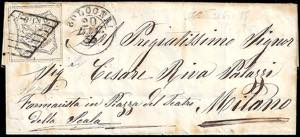 BOLOGNA
20
Al Pregiatissimo Signor
Sig Cesare Riva Palazzi
Farmacista in Piazza del Teatro
della Scala
Milano